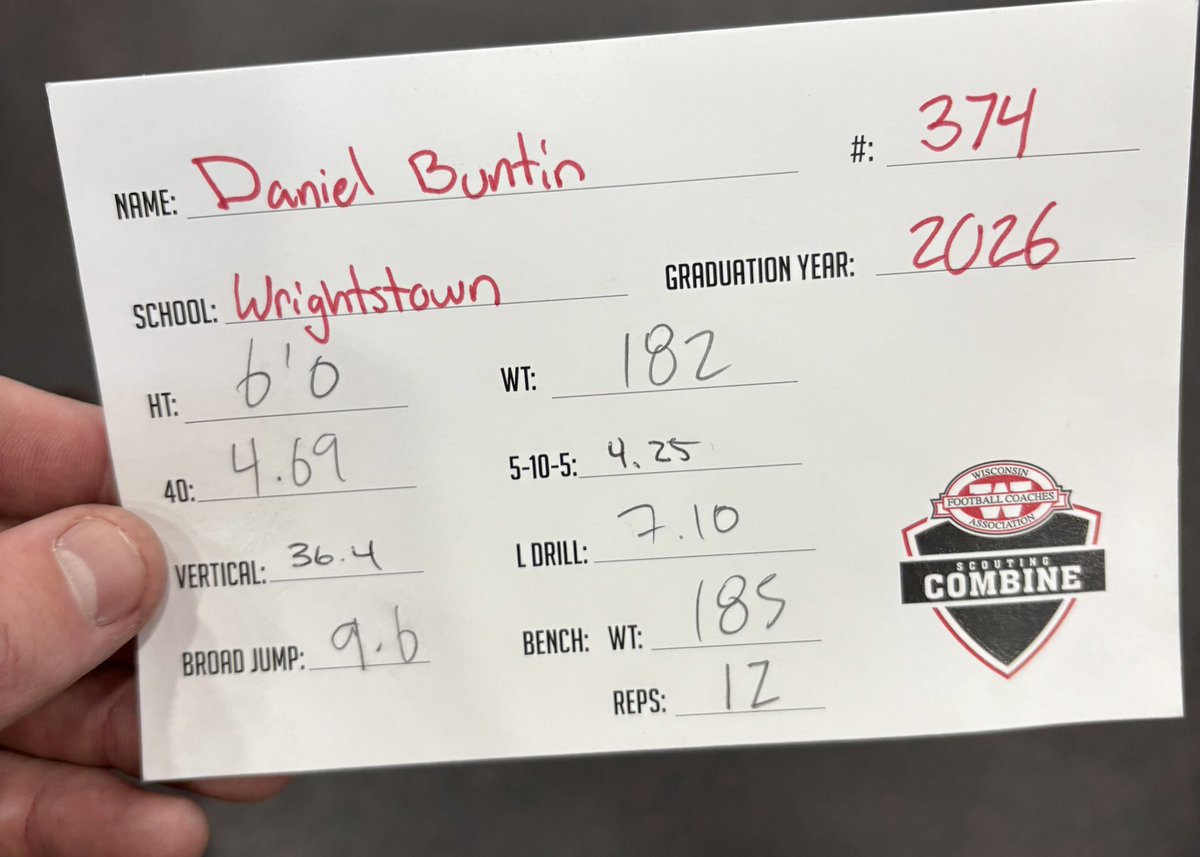 NAME: Daniel Buntin #: 374
SCHOOL: Wrightstown GRADUATION YEAR: 2026
HT: 6'0 WT: 182
40: 4.69 5-10-5: 4.25
VERTICAL: 36.4 L DRILL: 7.10
BROAD JUMP: 9.6 BENCH: WT: 185
REPS: 12
WISCONSIN
W
FOOTBALL COACHES
ASSOCIATION
SCOUTING
COMBINE